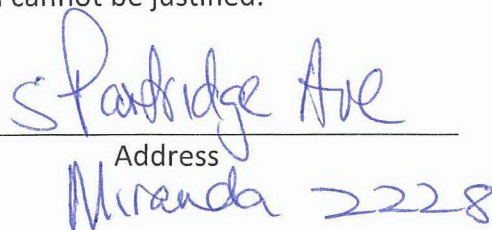 cannot be justified.
5 Partridge Ave
Address
Miranda 2228